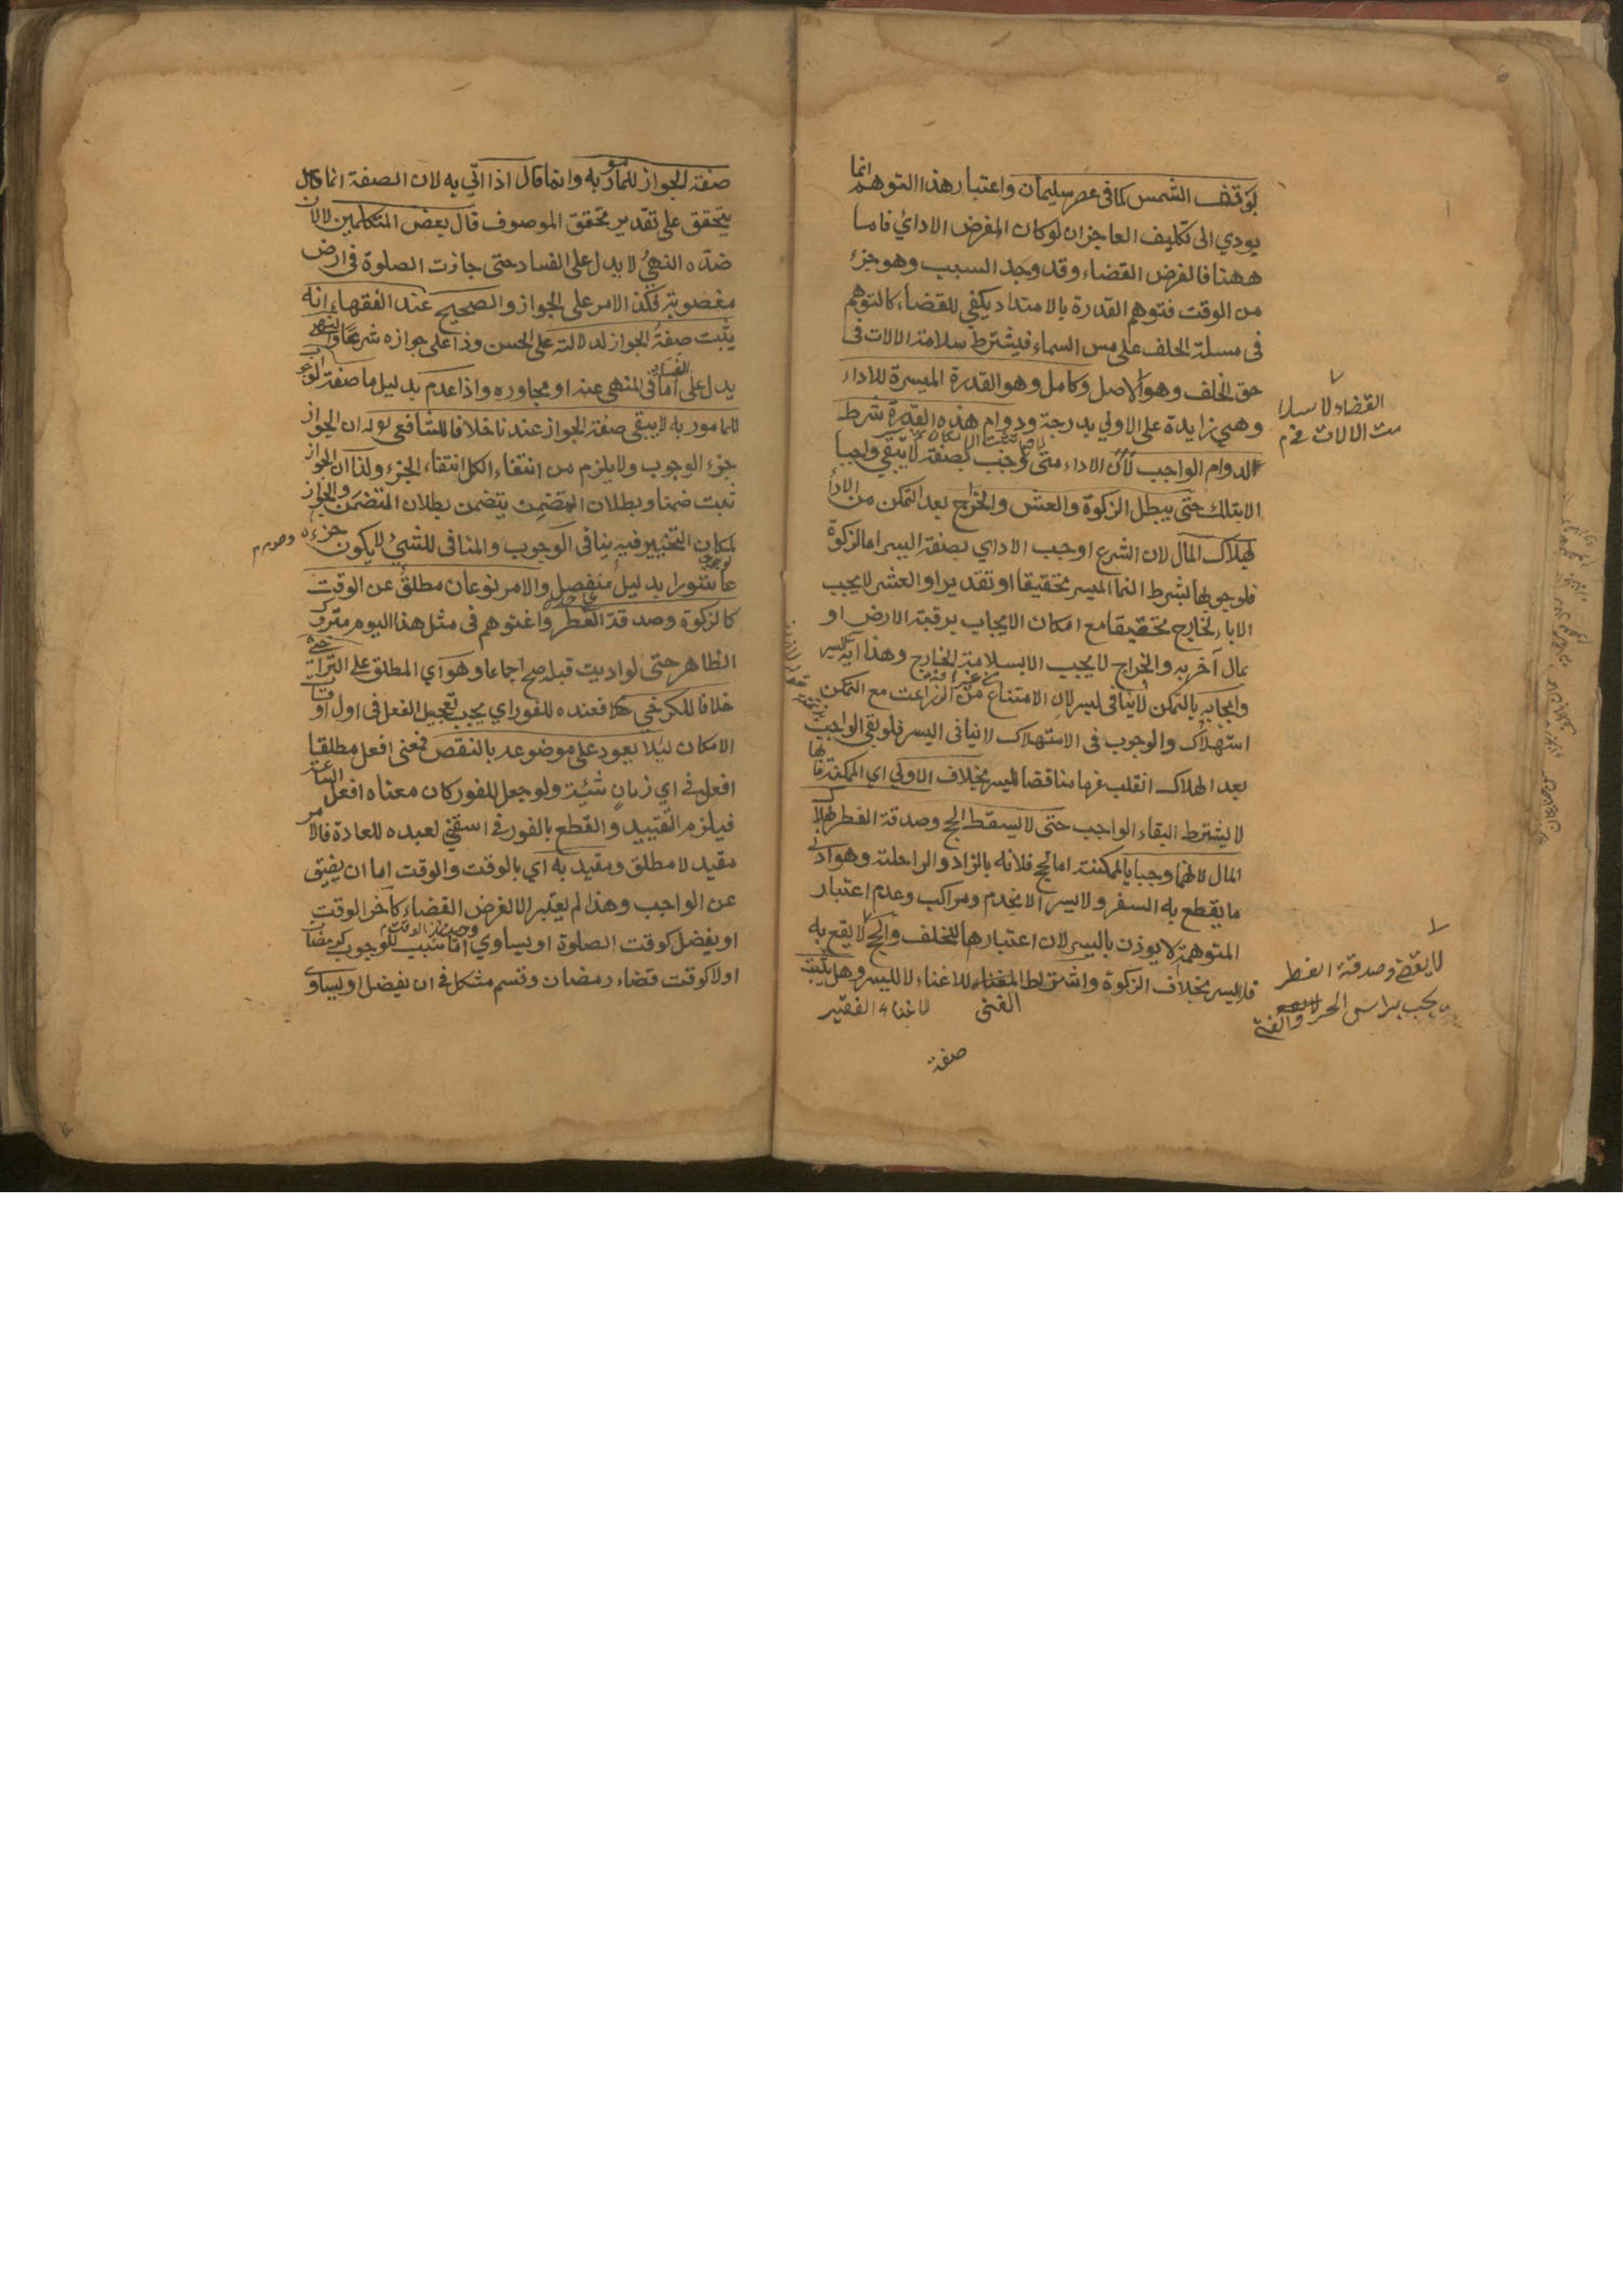 بوقف الشمس كما فى عصر سليمان واعتبار هذا التوهم انما
يودي الى تكليف العاجز ان لو كان المفرض الاداي فاما
ههنا فالفرض القضاء وقد وجد السبب وهو جزء
من الوقت فتوهم القدرة بالامتداد يكفي للقضاء كالتوهم
فى مسئلة الحلف على مس السماء فيشترط سلامة الالات فى
حق الخلف وهو الاصل وكامل وهو القدرة الميسرة للاداء
وهي زايدة على الاولي بدرجة ودوام هذه القدرة شرط
لدوام الواجب لان الاداء متى وجب بصفة لا يبقي واجبا
الا بتلك حتى يبطل الزكوة والعشر والخراج بعد التمكن من الادا
لهلاك المال لان الشرع اوجب الاداي بصفة اليسر اما الزكوة
فلوجوبها بشرط النما الميسر تحقيقا او تقديرا والعشر لا يجب
الا بالخارج تحقيقا مع امكان الايجاب برقبة الارض او
بمال آخر به والخراج لا يجب الا بسلامة الخارج وهذا آية اليسر
وايجابه بالتمكن لا ينافى ليسر لان الامتناع من الزراعت مع التمكن
استهلاك والوجوب فى الاستهلاك لا ينافى اليسر فلو بقي الواجب
بعد الهلاك انقلب غرما مناقضا لليسر بخلاف الاولي اي الممكنة فانها
لا يشترط البقاء الواجب حتى لا يسقط الحج وصدقة الفطر لهلاك
المال لانهما وجبا بالممكنة اما الحج فلانه بالزاد والراحلة وهو ادنى
ما يقطع به السفر ولا يسر الا بخدم ومراكب وعدم اعتبار
المتوهمة لا يوذن باليسر لان اعتبارها للخلف والحج لا يقع به
فلا يسر بخلاف الزكوة واشتراط الغناء للاغناء لا لليسر وهل يثبت
الغنى لاغناء الفقير
صفة
القضاء لا سلا
مت الالات فخ م
لا يقضى وصدقة الفطر
يجب براس الحر والغني
صفة الجواز للمامور به وانما قال اذا اتي به لان الصفة انما
يتحقق على تقدير تحقق الموصوف قال بعض المتكلمين لا لان
ضده النهي لا يدل على الفساد حتى جازت الصلوة فى ارض
مغصوبة فكذا الامر على الجواز والصحيح عند الفقهاء انه
يثبت صفة الجواز لدلالته على الحسن وذا على جوازه شرعا والنهي
يدل على الفساد اما فى المنهي عنه او مجاوره واذا عدم بدليل ما صفة الوجوب
للمامور به لا يبقي صفة الجواز عندنا خلافا للشافعي له ان الجواز
جزء الوجوب ولا يلزم من انتفاء الكل انتفاء الجزء ولنا ان الجواز
ثبت ضمنا وبطلان المتضمن يتضمن بطلان المتضمن والجواز
لمكان التخيير فيه ينافى الوجوب والمنافى للشيء لا يكون جزءه وصوم
عاشورا بدليل منفصل والامر نوعان مطلق عن الوقت
كالزكوة وصدقة الفطر واغنوهم فى مثل هذا اليوم متروك
الظاهر حتى لو اديت قبله صح اجماعا وهو اي المطلق على التراخي
خلافا للكرخي فعنده للفور اي يجب تعجيل الفعل فى اول اوقات
الامكان ليلا يعود على موضوعه بالنقص فمعنى افعل مطلقا
افعل في اي زمان شئية ولو جعل للفور كان معناه افعل الساعة
فيلزم التقييد والقطع بالفور في اسقني لعبده للعادة فالامر
مقيد لا مطلق ومقيد به اي بالوقت والوقت اما ان يضيق
عن الواجب وهذا لم يعتبر الا لفرض القضاء كآخر الوقت
او يفضل كوقت الصلوة او يساوي اما سبب للوجوب كرمضان
اولا كوقت قضاء رمضان وقسم مشكل في ان يفضل او يساوي